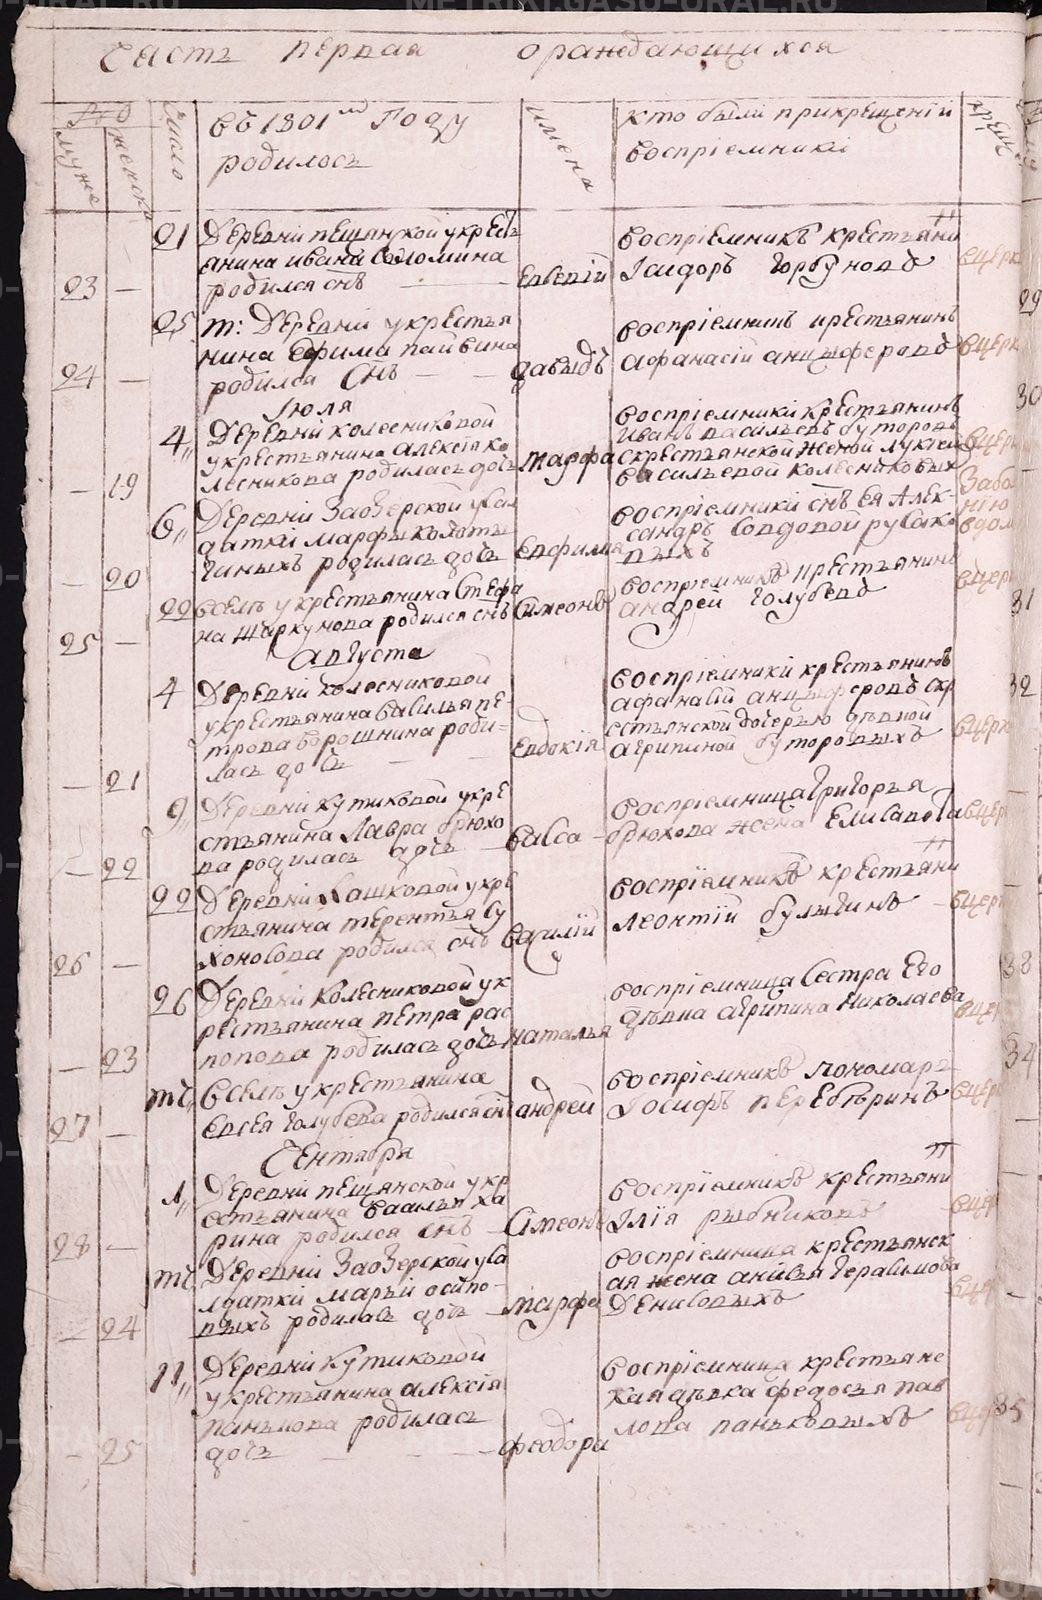 METRIKI.GASU-URAL.RU
Часть первая о раждающихся
№
муже
женска
Число
въ 1801мъ Году
родилось
имена
кто были прикрещенiи
восприемники
крещ
21 Деревни пещанской укрест
янина ивана Соломина
23 — родился снъ Евсевiй
восприемникъ крестьяни
Iсидоръ горбуновъ
вцерк
25 т: Деревни укрестья
нина Ефима пайвина
24 — родился Снъ — давыдъ
восприемникъ крестьянинъ
афанасiй анцыферовъ
вцерк
Iюля
4 Деревни колесниковой
укрестьянина алексiя ко
лесникова родилась дочь марфа
— 19
восприемники крестьянинъ
иванъ васильевъ буторовъ
скрестьянской женой
васильевой колесниковыхъ
вцерк
6 Деревни Заозерской усал
датки марфы
родилась дочь Евфимiя
— 20
восприемники снъ ея Алек-
сандръ Совдовой русако
выхъ
22 вселѣ укрестьянина Стефа
на Шаркунова родился снъ Симеонъ
25 —
восприемникъ крестьянинъ
андрей голубевъ
вцерк
августа
4 Деревни колесниковой
укрестьянина василья пе-
трова борошнина роди-
лась дочь — Евдокiя
— 21
восприемники крестьянинъ
афанасiй анцыферовъ скр
естьянской дочерью дѣвкой
агрипиной буторовыхъ
вцерк
9 Деревни кутиковой укре
стьянина Лавра брюхо
ва родилась дочь — васса
— 22
восприемница григорья
брюхова жена Елисавета
вцерк
22 Деревни Кашковой укре
стьянина терентья Су
хоносова родился снъ василiй
26 —
восприемникъ крестьяни
леонтiй булыгинъ
вцерк
26 Деревни колесниковой ук
рестьянина петра рас
попова родилась дочь наталья
— 23
восприемница Сестра Его
дѣвка агрипина николаева
вцерк
тч вселѣ укрестьянина
Евсея голубева родился снъ андрей
27 —
восприемникъ пономарь
Iосифъ перебѣринъ
вцерк
Сентабря
1 Деревни пещанской укр
естьянина василья ха
рина родился снъ — Симеонъ
28 —
восприемникъ крестьяни
Iлiя рыбниковъ
вцерк
тч Деревни Заозерской уса
лдатки марьи осипо-
выхъ родилась дочь — марфа
— 24
восприемница крестьянск
ая жена анисья герасимова
Денисовыхъ
вцерк
11 Деревни кутиковой
укрестьянина алексiя
панькова родилась
дочь — феодора
— 25
восприемница крестьянс
кая дѣвка федосья пав
лова паньковыхъ
вцерк
29
30
31
32
33
34
35
METRIKI.GASU-URAL.RU